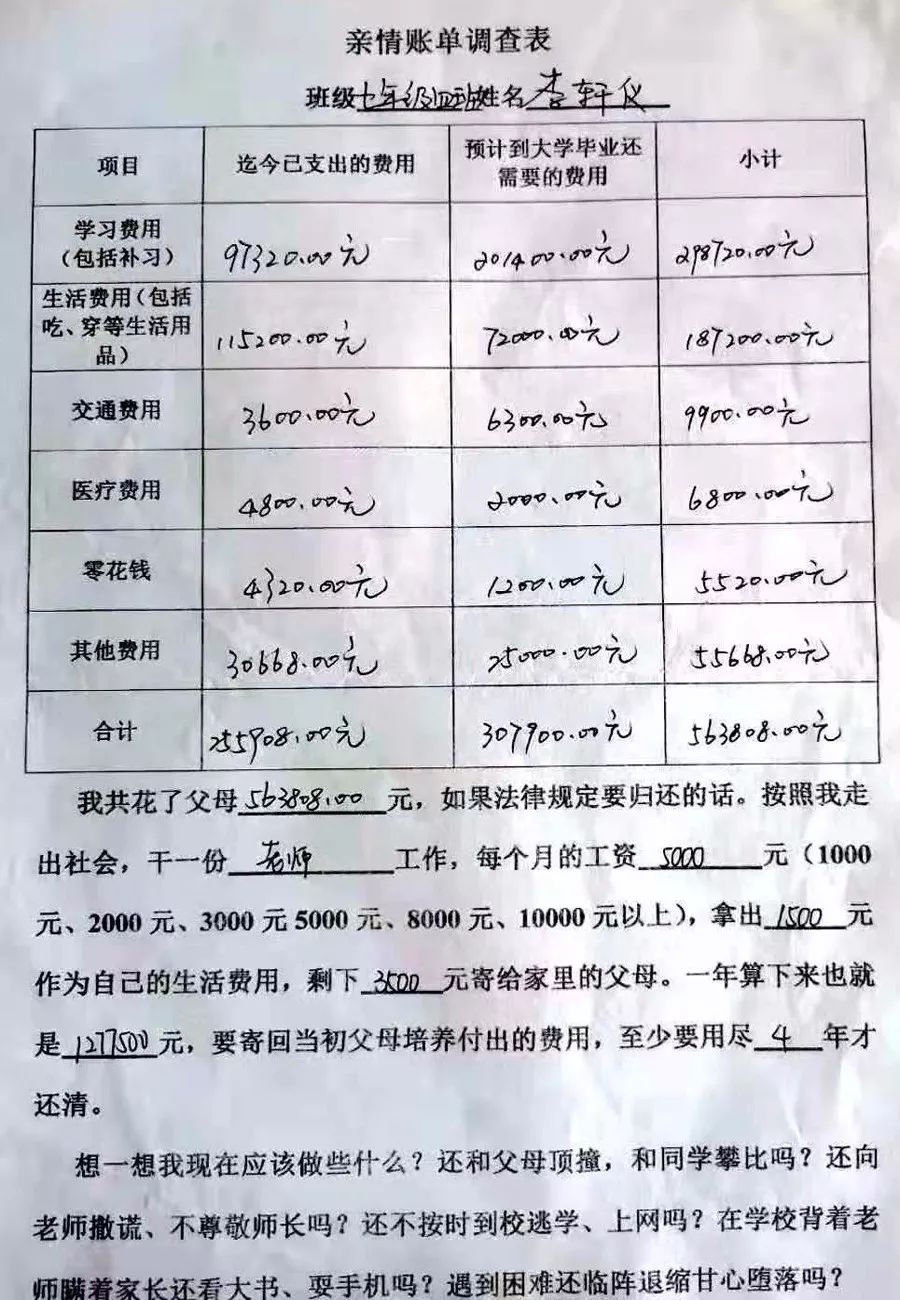 亲情账单调查表
班级七年级四班姓名李轩仪
项目 迄今已支出的费用 预计到大学毕业还需要的费用 小计
学习费用（包括补习） 97320.00元 201400.00元 298720.00元
生活费用（包括吃、穿等生活用品） 115200.00元 72000.00元 187200.00元
交通费用 3600.00元 6300.00元 9900.00元
医疗费用 4800.00元 2000.00元 6800.00元
零花钱 4320.00元 1200.00元 5520.00元
其他费用 30668.00元 25000.00元 55668.00元
合计 255908.00元 307900.00元 563808.00元
我共花了父母563808.00元，如果法律规定要归还的话。按照我走
出社会，干一份老师工作，每个月的工资5000元（1000
元、2000元、3000元5000元、8000元、10000元以上），拿出1500元
作为自己的生活费用，剩下3500元寄给家里的父母。一年算下来也就
是1277500元，要寄回当初父母培养付出的费用，至少要用尽4年才
还清。
想一想我现在应该做些什么？还和父母顶撞，和同学攀比吗？还向
老师撒谎、不尊敬师长吗？还不按时到校逃学、上网吗？在学校背着老
师瞒着家长还看大书、耍手机吗？遇到困难还临阵退缩甘心堕落吗？